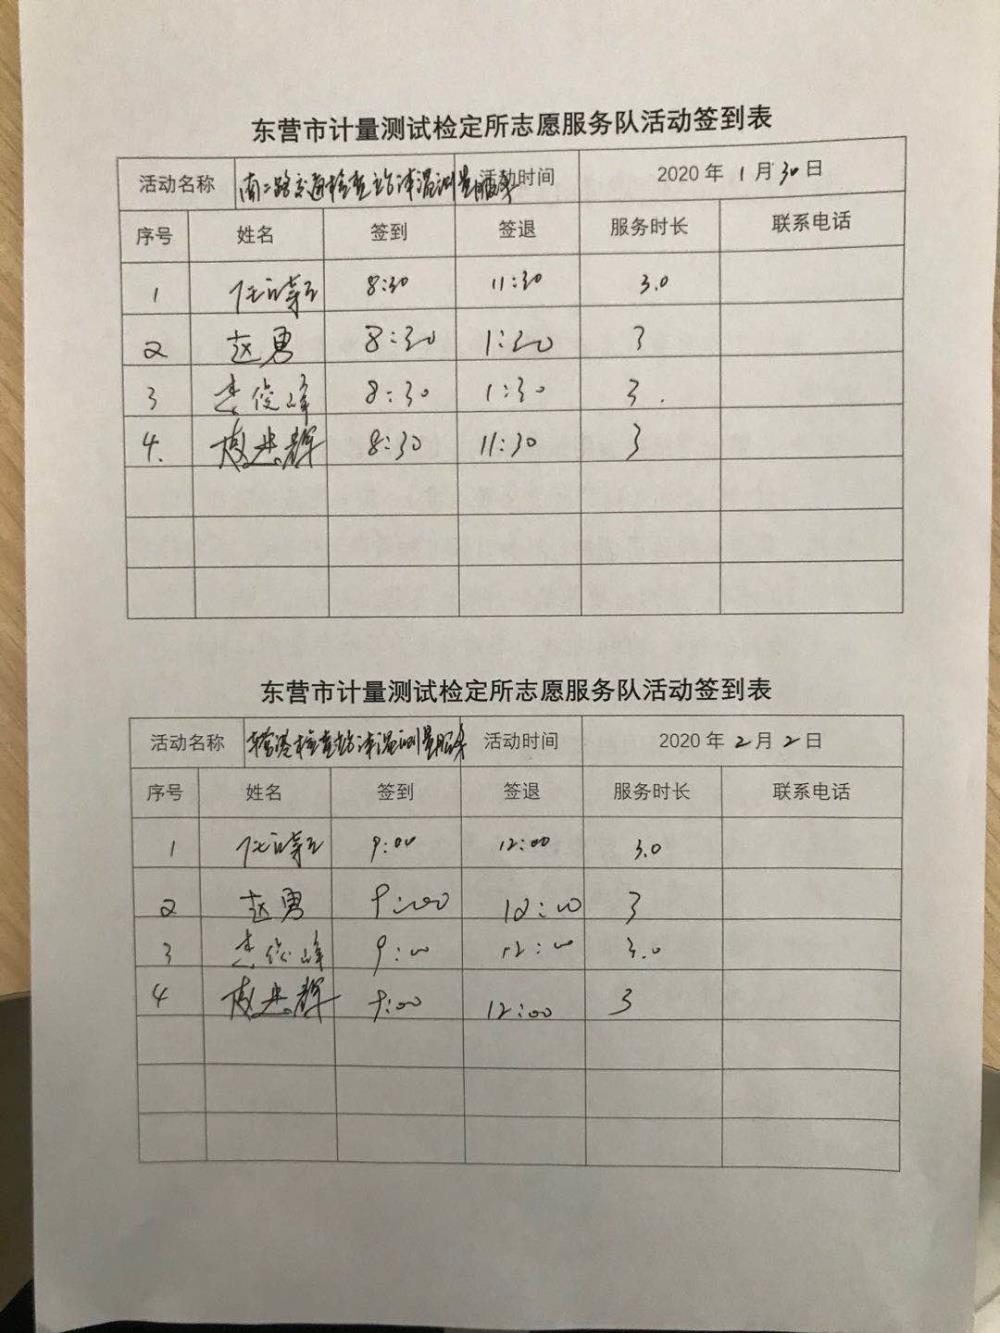 东营市计量测试检定所志愿服务队活动签到表
活动名称 南二路交通检查站体温测量服务 活动时间 2020年1月30日
序号 姓名 签到 签退 服务时长 联系电话
1 8:30 11:30 3.0
2 赵勇 8:30 1:30 3
3 李俊峰 8:30 1:30 3.
4. 8:30 11:30 3
东营市计量测试检定所志愿服务队活动签到表
活动名称 东营港检查站体温测量服务 活动时间 2020年2月2日
序号 姓名 签到 签退 服务时长 联系电话
1 9:00 12:00 3.0
2 赵勇 9:00 12:00 3
3 李俊峰 9:00 12:00 3.0
4 9:00 12:00 3